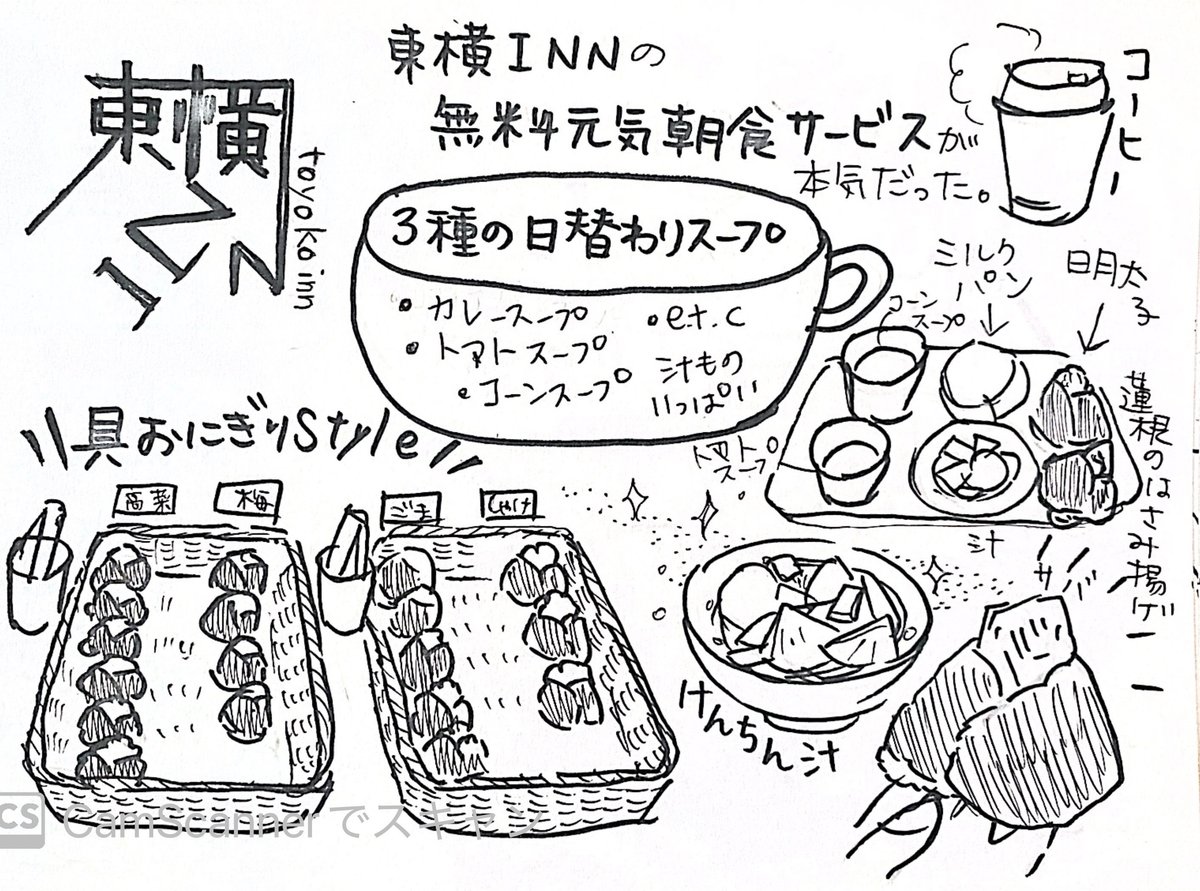 東横INN
toyoko inn
東横INNの
無料元気朝食サービスが
本気だった。
コーヒー
3種の日替わりスープ
・カレースープ
・トマトスープ
・コーンスープ
・e.t.c
汁もの
いっぱい
コーン
スープ
ミルク
パン
明太子
トマト
スープ
蓮根のはさみ揚げー
具おにぎりStyle
高菜
梅
ごま
しゃけ
けんちん汁
CS CamScanner でスキャン